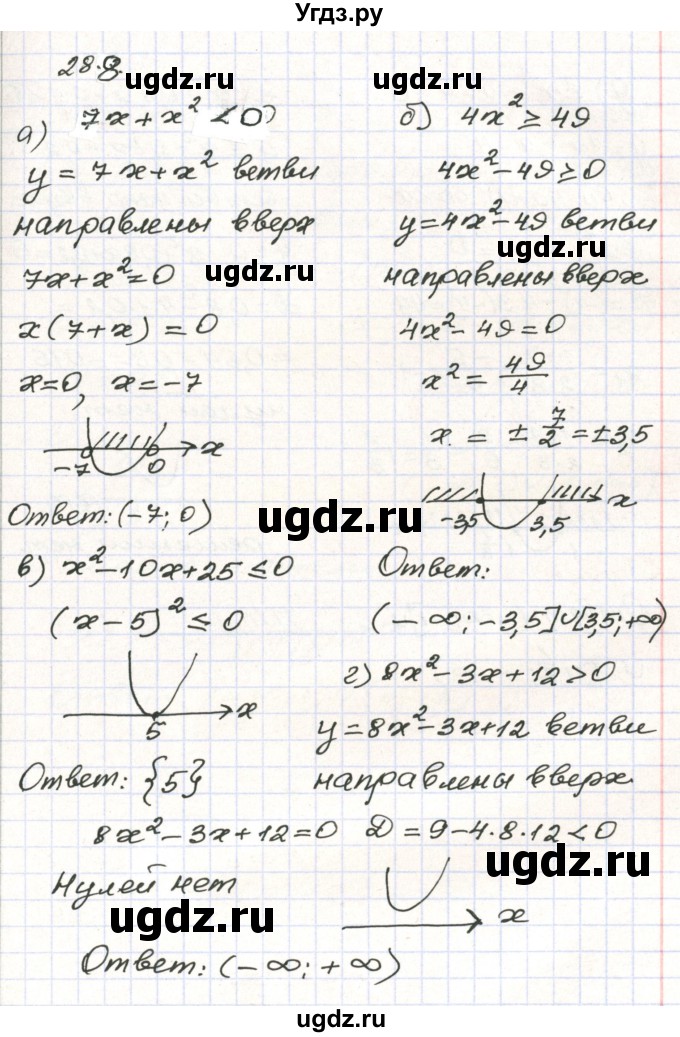 Угдз.ру
28.8.
ugdz.ru
а) 7x + x² < 0
y = 7x + x² ветви
направлены вверх
7x + x² = 0
x(7 + x) = 0
x = 0, x = -7
-7 0 x
Ответ: (-7; 0)
б) 4x² ≥ 49
4x² - 49 ≥ 0
y = 4x² - 49 ветви
направлены вверх
ugdz.ru
ugdz.ru
4x² - 49 = 0
x² = 49/4
x = ± 7/2 = ±3,5
-3,5 3,5 x
ugdz.ru
Ответ:
(-∞; -3,5]∪[3,5; +∞)
в) x² - 10x + 25 ≤ 0
(x - 5)² ≤ 0
5 x
Ответ: {5}
г) 8x² - 3x + 12 > 0
y = 8x² - 3x + 12 ветви
направлены вверх
8x² - 3x + 12 = 0 D = 9 - 4·8·12 < 0
ugdz.ru
Нулей нет
x
ugdz.ru
Ответ: (-∞; +∞)
ugdz.ru